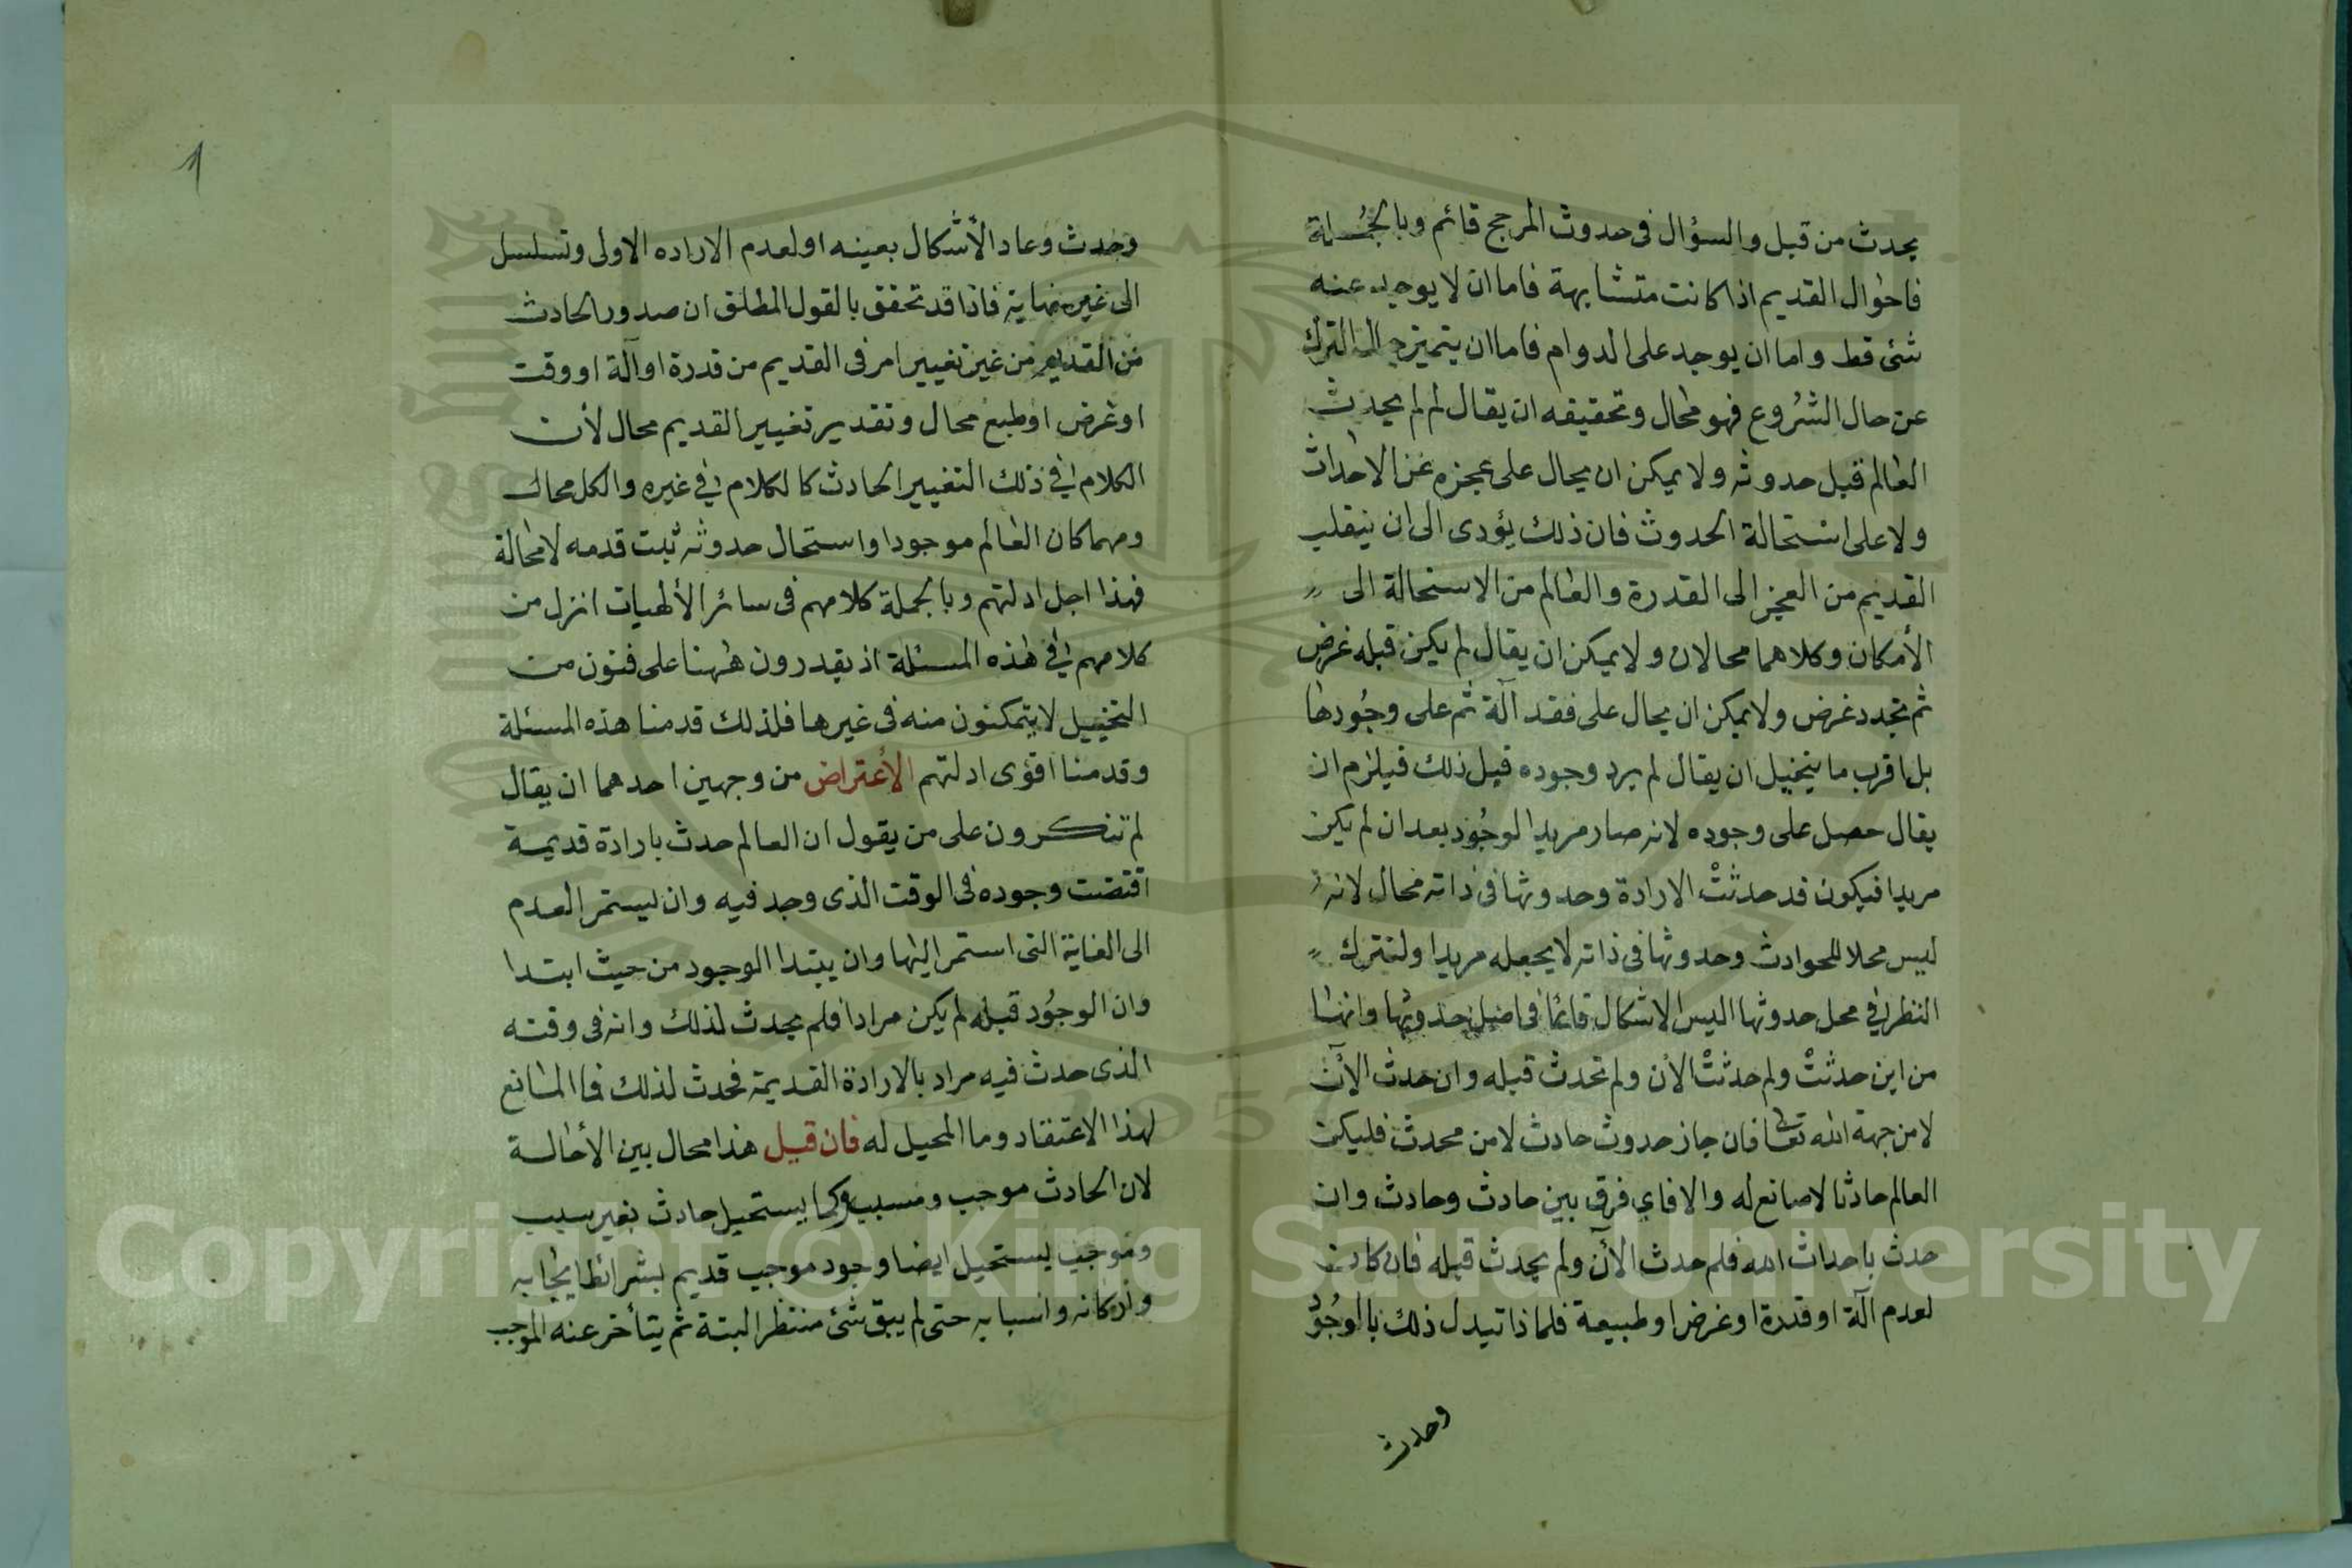 يحدث من قبل والسؤال فى حدوث المرجح قائم وبالجُملة
فاحوال القديم اذا كانت متشابهة فاما ان لا يوجد عنه
شئ قط واما ان يوجد على الدوام فاما ان يتميز حال الترك
عن حال الشُروع فهو محال وتحقيقه ان يقال لم لم يحدث
العالم قبل حدوثه ولا يمكن ان يحال على عجزه عن الاحداث
ولا على استحالة الحدوث فان ذلك يؤدى الى ان ينقلب
القديم من العجز الى القدرة والعالم من الاستحالة الى
الأمكان وكلاهما محالان ولا يمكن ان يقال لم يكن قبله غرض
ثم تجدد غرض ولا يمكن ان يحال على فقد آلة ثم على وجُودها
بل اقرب ما يتخيل ان يقال لم يرد وجوده قبل ذلك فيلزم ان
يقال حصل على وجوده لانه صار مريدا لوجُود بعد ان لم يكن
مريدا فيكون قد حدثتْ الارادة وحدوثها فى ذاته محال لانه
ليس محلا للحوادث وحدوثها فى ذاته لا يجعله مريدا ولنترك
النظر فى محل حدوثها اليس الاشكال قائما فى اصل حدوثها وانها
من اين حدثتْ ولم حدثتْ الأن ولم تحدث قبله وان حدث الآن
لا من جهة الله تعالى فان جاز حدوث حادث لا من محدث فليكن
العالم حادثا لا صانع له والا فاي فرق بين حادث وحادث وان
حدث باحداث الله فلم حدث الآن ولم يحدث قبله فان كانت
لعدم آلة او قدرة او غرض او طبيعة فلماذا تبدل ذلك بالوجُود
وحدث
1
وحدث وعاد الأشكال بعينه او لعدم الاراده الاولى وتسلسل
الى غير نهاية فاذا قد تحقق بالقول المطلق ان صدور الحادث
من القديم من غير تغيير امر فى القديم من قدرة او آلة او وقت
او غرض او طبع محال وتقدير تغيير القديم محال لأن
الكلام فى ذلك التغيير الحادث كالكلام فى غيره والكل محال
ومهما كان العالم موجودا واستحال حدوثه ثبت قدمه لا محالة
فهذا اجل ادلتهم وبالجملة كلامهم فى سائر الألهيات انزل من
كلامهم فى هذه المسئلة اذ يقدرون هٰهنا على فنون من
التخييل لا يتمكنون منه فى غيرها فلذلك قدمنا هذه المسئلة
وقدمنا اقوى ادلتهم الأعتراض من وجهين احدهما ان يقال
لم تنكرون على من يقول ان العالم حدث بارادة قديمة
اقتضت وجوده فى الوقت الذى وجد فيه وان يستمر العدم
الى الغاية التى استمر اليها وان يبتدا الوجود من حيث ابتدا
وان الوجُود قبله لم يكن مرادا فلم يحدث لذلك وانه فى وقته
الذى حدث فيه مراد بالارادة القديمة فحدث لذلك فما المانع
لهذا الاعتقاد وما المحيل له فان قيل هذا محال بين الأحالة
لان الحادث موجب ومسبب وكما يستحيل حادث بغير سبب
وموجب يستحيل ايضا وجود موجب قديم بشرائط ايجابه
واركانه واسبابه حتى لم يبق شئ منتظر البتة ثم يتأخر عنه الموجب
Copyright © King Saud University
1957